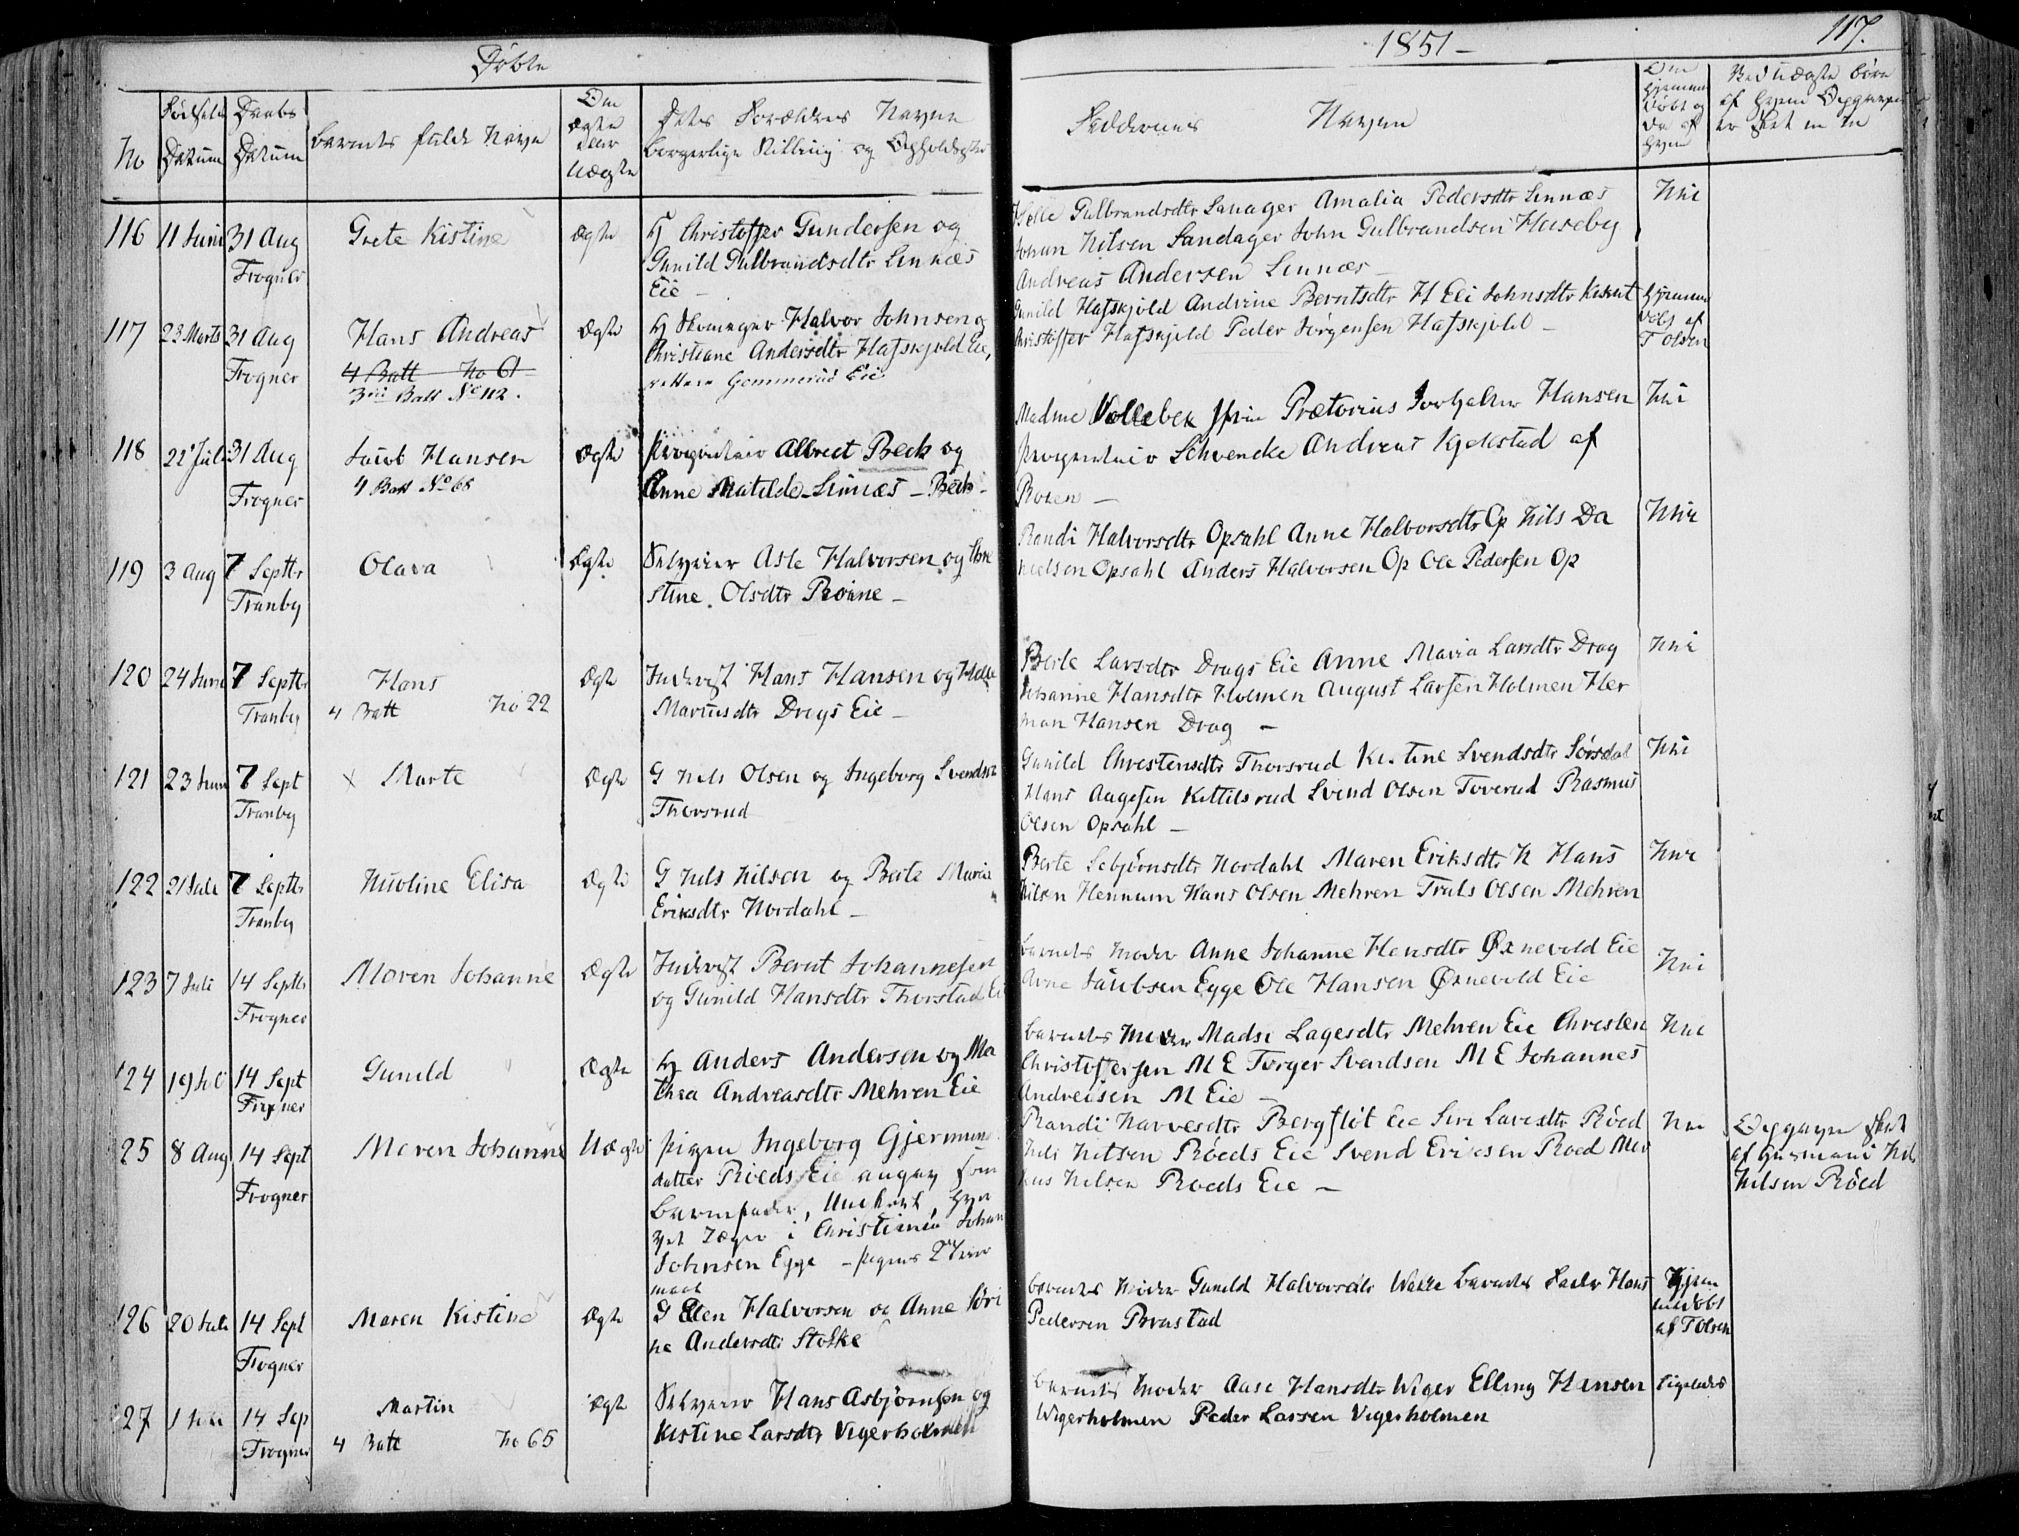 Døbte
1851 –
117.
No
Fødsels Datum
Daabs Datum
Barnets fulde Navn
Om Ægte eller Uægte
Dets Forældres Navne
borgerlige Stilling og Opholdssted
Faddernes Navn
Om hjemmedøbt og da af hvem
Ved uægte børn af hvem Opgaven er skeet
116 11 Juni 31 Aug Frogner
Grete Kistine
Ægte
Christoffer Gundersen og
Gunild Gulbrandsdtr Linnæs
Eie –
Helle Gulbrandsdtr Sanager Amalia Pedersdtr Linnæs
Johan Nilsen Sandager John Gulbrandsen Huseby
Andreas Andersen Linnæs –
Nei
117 23 Marts 31 Aug Frogner
Hans Andreas
4 Batt No
3die Batt No 112.
Ægte
Halvor Johnsen og
Christiane Andersdtr Hafskjold Eie,
rettere Gommerud Eie
Gunild Hafskjold Andrine Berntsdtr H Eie Johnsdtr
Christoffer Hafskjold Peder Jørgensen Hafskjold –
hjemme døbt af T Olsen
118 22 Juli 31 Aug Frogner
Jacob Hansen
4 Batt No 68
Ægte
Proprietair Albrect Beck og
Anne Matilde Linnæs – Beck –
Madme Vollebek Prætorius Hansen
Proprietair Schvencke Andreas Kjekstad af
Rozen –
Nei
119 3 Aug 7 Septbr Tranby
Olava
Ægte
Selveier Asle Halvorsen og Chri
stine Olsdtr
Randi Halvorsdtr Opsahl Anne Halvorsdtr Op Nils Da
nielsen Opsahl Anders Halvorsen Op Ole Pedersen Op
Nei
120 24 Juni 7 Septbr Tranby
Hans
4 Batt No 22
Ægte
Inderst Hans Hansen og Helle
Mariusdtr Drags Eie –
Berte Larsdtr Drags Eie Anne Maria Larsdtr Drag
Johanne Hansdtr Holmen August Larsen Holmen Her
man Hansen Drag –
Nei
121 23 Juni 7 Sept Tranby
x Marte
Ægte
G Nels Olsen og Ingeborg Svendsdtr
Thorsrud
Gunild Christensdtr Thorsrud Kistine Svendsdtr Sørsdal
Hans Aagesen Kittilsrud Svend Olsen Toverud Rasmus
Olsen Opsahl –
Nei
122 21 Juli 7 Septbr Tranby
Nicoline Elisa
Ægte
G Nels Nilsen og Berte Maria
Eriksdtr Nordahl –
Berte Sebjørnsdtr Nordahl Maren Eriksdtr N Hans
Nilsen Hennum Hans Olsen Mehren Truls Olsen Mehren
Nei
123 7 Juli 14 Septbr Frogner
Maren Johanne
Ægte
Inderst Bernt Johannesen
og Gunild Hansdtr Thorstad Ei
Barnets Moder Anne Johanne Hansdtr Øxnevold Eie
Arne Jacobsen Egge Ole Hansen Øxnevold Eie
Nei
124 19 14 Sept Frogner
Gunild
Ægte
Anders Andersen og Ma
thea Andreasdtr Mehren Eie
Barnets Moder Madsi Lagesdtr Mehren Eie Christen
Christoffersen M E Torger Svendsen M E Johannes
Andreasen M Eie –
Nei
25 8 Aug 14 Sept Frogner
Maren Johanne
Uægte
Pigen Ingeborg Gjermunds
datter Røeds Eie angav som
Barnefader, Ungkarl,
Jæger i Christiania Johan
Johnsen Egge – Pigens 2det
maal
Randi Narvesdtr Bergfløt Eie Siri Larsdtr Røed
Nels Nilsen Røeds Eie Svend Eriksen Roed Mar
kus Nilsen Roeds Eie –
Nei
Opgaven skeet
af Huusmand Nils
Nilsen Røed
126 20 Juli 14 Sept Frogner
Maren Kistine
Ægte
G Ellen Halvorsen og Anne Siri
ne Andersdtr Stokke
Barnets Moder Gunild Halvorsdtr Barnets Fader Hans
Pedersen Brastad
Hjemmedøbt af T Olsen
27 14 Sep Frogner
Martin
4 Batt No 65
Ægte
Selveier Hans Asbjørnsen og
Kistine Larsdtr Vigerholmen
Barnets Moder Aase Hansdtr Wiger Elling Hansen
Wigerholmen Peder Larsen Vigerholmen
Ligeledes